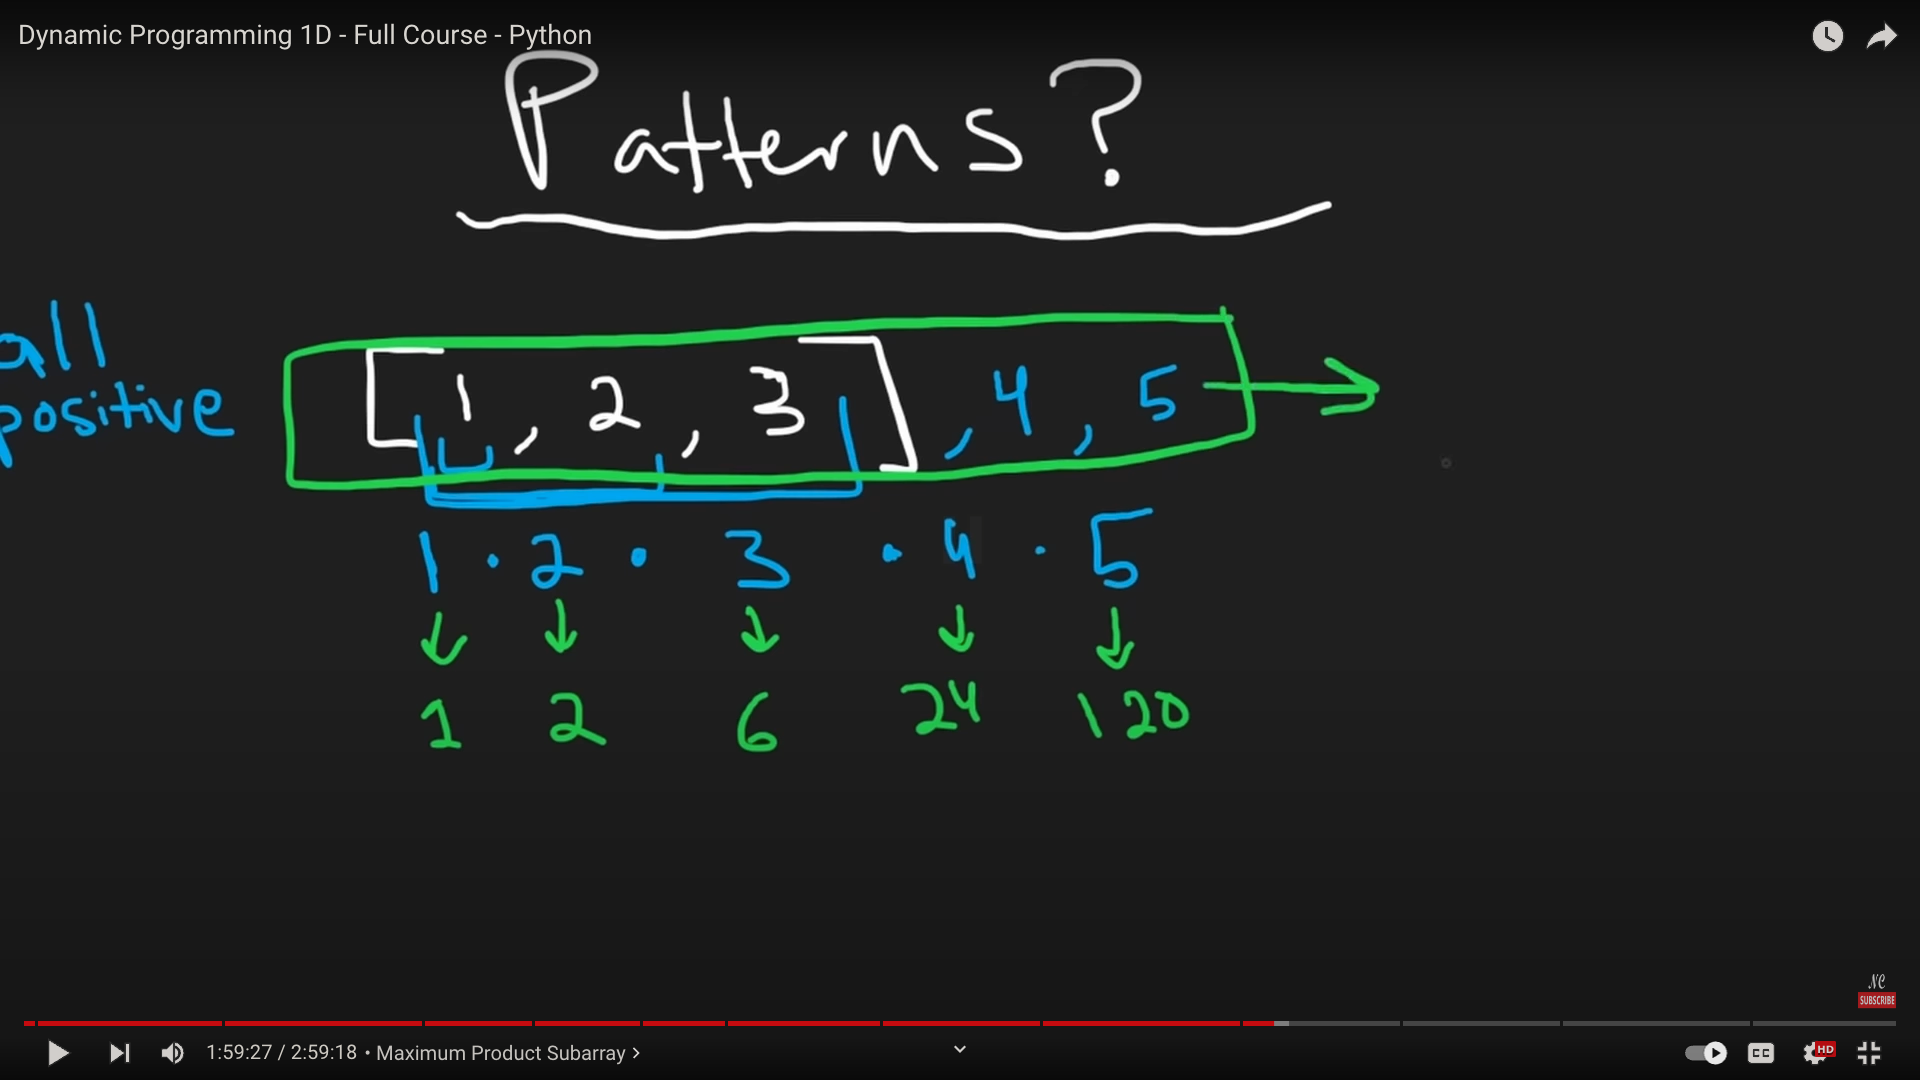 Dynamic Programming 1D - Full Course - Python
Patterns?
all
positive
[1, 2, 3], 4, 5
1 · 2 · 3 · 4 · 5
1 2 6 24 120
NC
SUBSCRIBE
1:59:27 / 2:59:18 • Maximum Product Subarray >
CC
HD